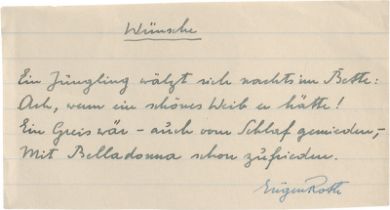 Wünsche
Ein Jüngling wälzt sich nachts im Bette:
Ach, wenn ein schönes Weib er hätte!
Ein Greis wär - auch vom Schlaf gemieden,-
Mit Belladonna schon zufrieden.
Eugen Roth